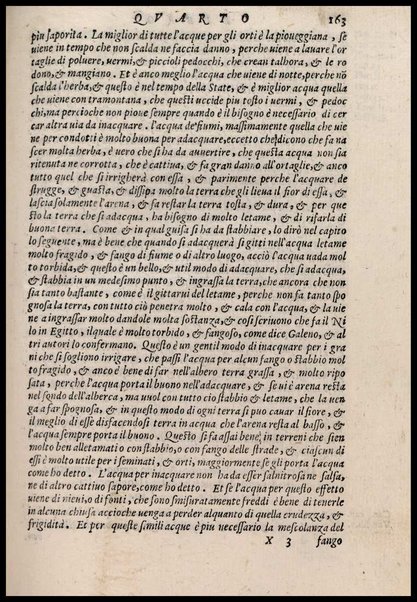 QVARTO 163
piu saporita. La miglior di tutte l'acque per gli orti è la pioueggiana, se
uiene in tempo che non scalda ne faccia danno, perche uiene a lauare l'or
taglie di poluere, uermi, & piccioli pedocchi, che crean talhora, & le ro
dono, & mangiano. Et è anco meglio l'acqua che uiene di notte, perche nõ
scalda l'herba, & questo è nel tempo della State, & è miglior acqua quella
che uiene con tramontana, che questi uccide piu tosto i uermi, & pedoc
chi, ma percioche non pioue sempre quando è il bisogno è necessario di cer
car altra uia da inacquare. l'acqua de' fiumi, massimamente quella che uie
ne per condotti è molto buona per adacquare, eccetto che dicono che fa na
scer molta herba, è uero che si ha da auuertire, che questa acqua non sia
ritenuta ne corrotta, che è cattiua, & fa gran danno all'ortaglie, & anc
tutto quel che si irrigherà con essa, & parimente perche l'acquare de
strugge, & guasta, & dissipa molto la terra che gli lieua il fior di essa, &
lascia solamente l'arena, & fa restar la terra tosta, & dura, & per que
sto la terra che si adacqua, ha bisogno di molto letame, & di rifarla di
buona terra. Come & in qual guisa si ha da stabbiare, lo dirò nel capito
lo seguente, ma è bene che quando si adacquerà si gitti nell'acqua letame
molto fragido, & fango di fiume o di altro luogo, acciò l'acqua uada mol
to torbida, & questo è un bello, & util modo di adacquare, che si adacqua, &
stabbia in un medesimo punto, & ingrassa la terra, che ancora che non
sia tanto bastante, come è il gittarui del letame, perche non fa tanto spo
gnosa la terra, con tutto ciò penetra molto, & cala con l'acqua, & la uie
ne a ingrassar molto dandole molta sostanza, & cosi scriuono che fa il Ni
lo in Egitto, il quale è molto torbido, & fangoso, come dice Galeno, & al
tri autori lo confermano. Questo è un gentil modo di inacquare per i gra
ni che si sogliono irrigare, che passi l'acqua per alcun fango o stabbio mol
to fragido, & anco è bene di far nell'albero terra grassa, & molto ripo
sata, perche l'acqua porta il buono nell'adacquare, & se ui è arena resta
nel fondo dell'alberca, ma uuol con tutto ciò stabbio & letame, che la uen
ga a far spognosa, & in questo modo di ogni terra si puo cauar il fiore, &
il meglio di esse disfacendosi terra in acqua che l'arena resta al basso, &
l'acqua sempre porta il buono. Questo si fa assai bene, in terreni che sien
molto ben alletamati o con stabbio, o con fango delle strade, & ciascun di
essi è molto utile per i seminati, & orti, maggiormente se gli porta l'acqua
come ho detto. L'acqua per inacquare non ha da esser salnitrosa ne salsa,
ne di altro cattiuo sapore, come ho detto. Et se l'acqua per questo effetto
uiene di nieui, o di fonti, che sono smisuratamente freddi è bene di tenerle
in alcuna chiusa accioche uenga a perder alquanto di quella crudezza, &
frigidità. Et per queste simili acque è piu necessario la mescolanza del
X 3 fango